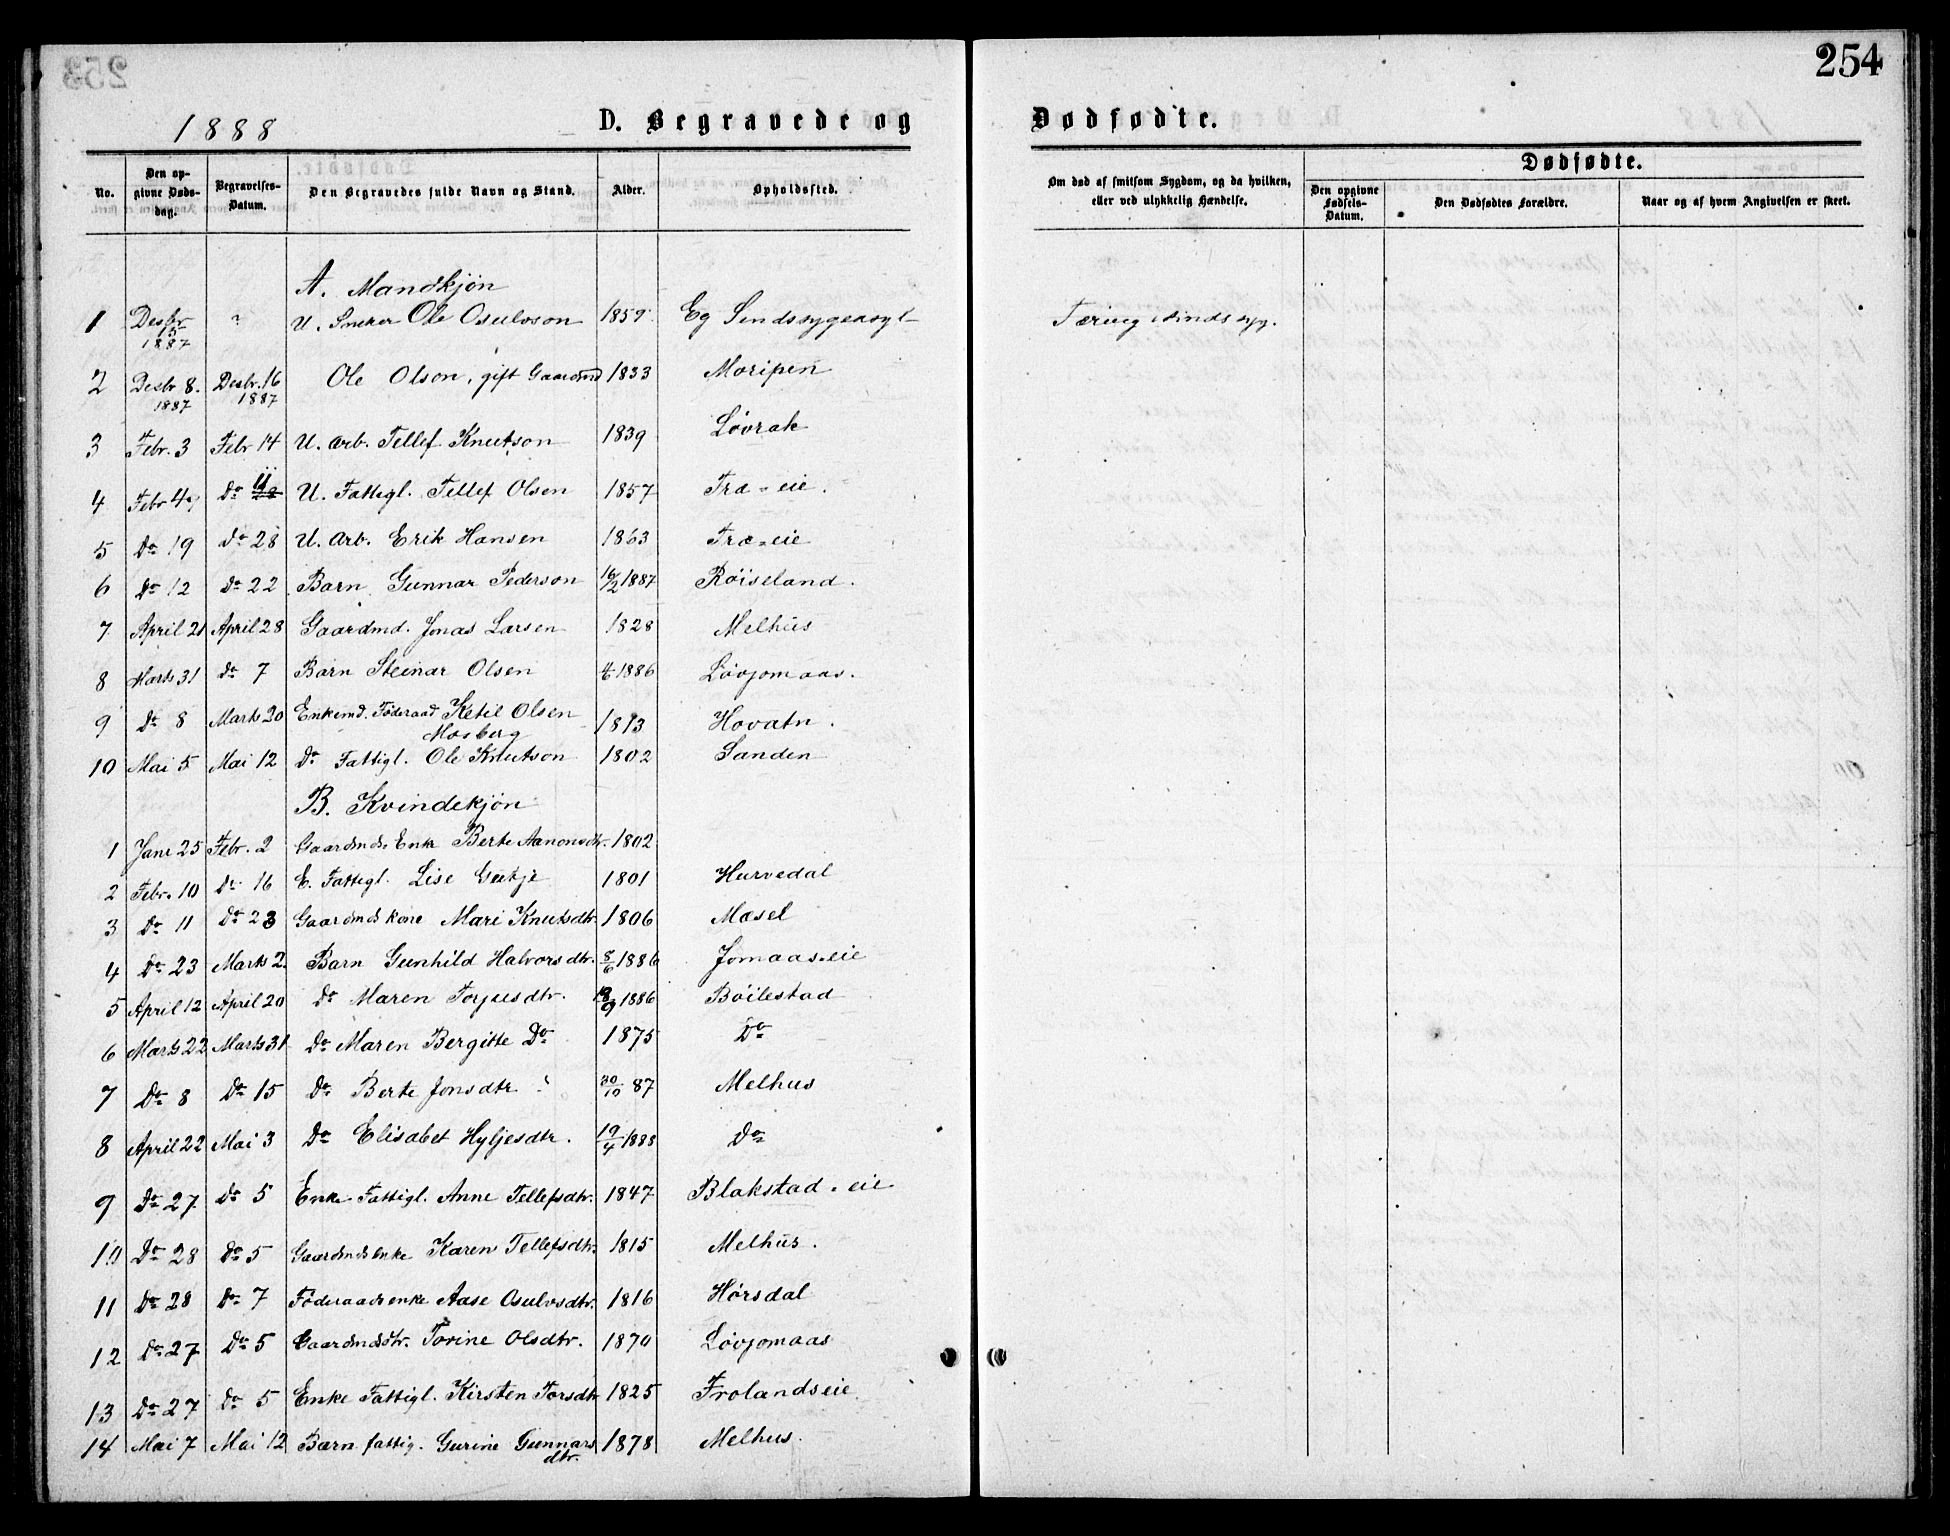 254
1888
D. Begravede og Dødfødte.
No. Den opgivne Dødsdag. Begravelses-Datum. Den Begravedes fulde Navn og Stand. Alder. Opholdssted. Om død af smitsom Sygdom, og da hvilken, eller ved ulykkelig Hændelse. Dødfødte. Den opgivne Fødsels-Datum. Den Dødfødtes Forældre. Naar og af hvem Angivelsen er skeet.
A. Mandkjøn
1 Desbr 5 1887 ? U. Sneker Ole Osulvson 1859 Eg Sindssygeasyl Tæring, Sindssyg.
2 Desbr 8. 1887 Desbr. 16 1887 Ole Olson, gift Gaardmd 1833 Moripen
3 Febr. 3 Febr 14 U. Arb. Tellef Knutson 1839 Løvrak
4 Febr 4 Do 11 U. Fattigl. Tellef Olsen 1857 Træ-eie.
5 Do 19 Do 28 U. Arb. Erik Hansen 1863 Træ-eie
6 Do 12 Do 22 Barn Gunnar Pederson 16/2 1887 Røiseland.
7 April 21 April 28 Gaardmd. Jonas Larsen 1828 Melhus
8 Marts 31 Do 7 Barn Steinar Olsen 4/6 1886 Løvjomaas.
9 Do 8 Marts 20 Enkemd. Føderaad Ketil Olsen Mosberg 1813 Hovatn.
10 Mai 5 Mai 12 Do Fattigl. Ole Knutson 1802 Sanden
B. Kvindekjøn
1 Janr 25 Febr. 2 Gaardmds Enke Berte Aanonsdtr. 1802
2 Febr. 10 Do 16 E. Fattigl. Lise 1801 Hurvedal
3 Do 11 Do 23 Gaardmds kone Mari Knutsdtr. 1806 Mæsel
4 Do 23 Marts 2 Barn Gunhild Halvorsdtr. 8/6 1886 Jomaas-eie
5 April 12 April 20 Do Maren Torjusdtr. 1886 Bøilestad
6 Marts 22 Marts 31 Do Maren Bergitte Do 1875 Do
7 Do 8 Do 15 Do Berte Jonsdtr 30/10 87 Melhus
8 April 22 Mai 3 Do Elisabet Hyljesdtr. 19/4 1888 Do
9 Do 27 Do 5 Enke Fattigl. Anne Tellefsdtr. 1847 Blakstad-eie
10 Do 28 Do 5 Gaardmdsenke Karen Tellefsdtr. 1815 Melhus.
11 Do 28 Do 7 Føderaadsenke Aase Osulvsdtr. 1816 Hørsdal
12 Do 27 Do 5 Gaardmdsdtr. Torine Olsdtr. 1870 Løvjomaas
13 Do 27 Do 5 Enke Fattigl. Kirsten Torsdtr 1825 Frolandseie
14 Mai 7 Mai 12 Barn fattig. Gurine Gunnarsdtr. 1878 Melhus.